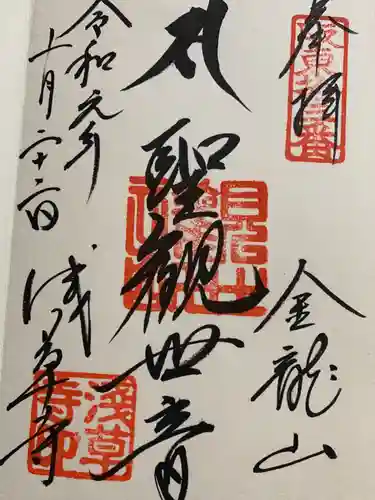 奉拝
坂東十三番
金龍山
聖観世音
令和元年
十月二十二日
浅草寺
淺草寺印